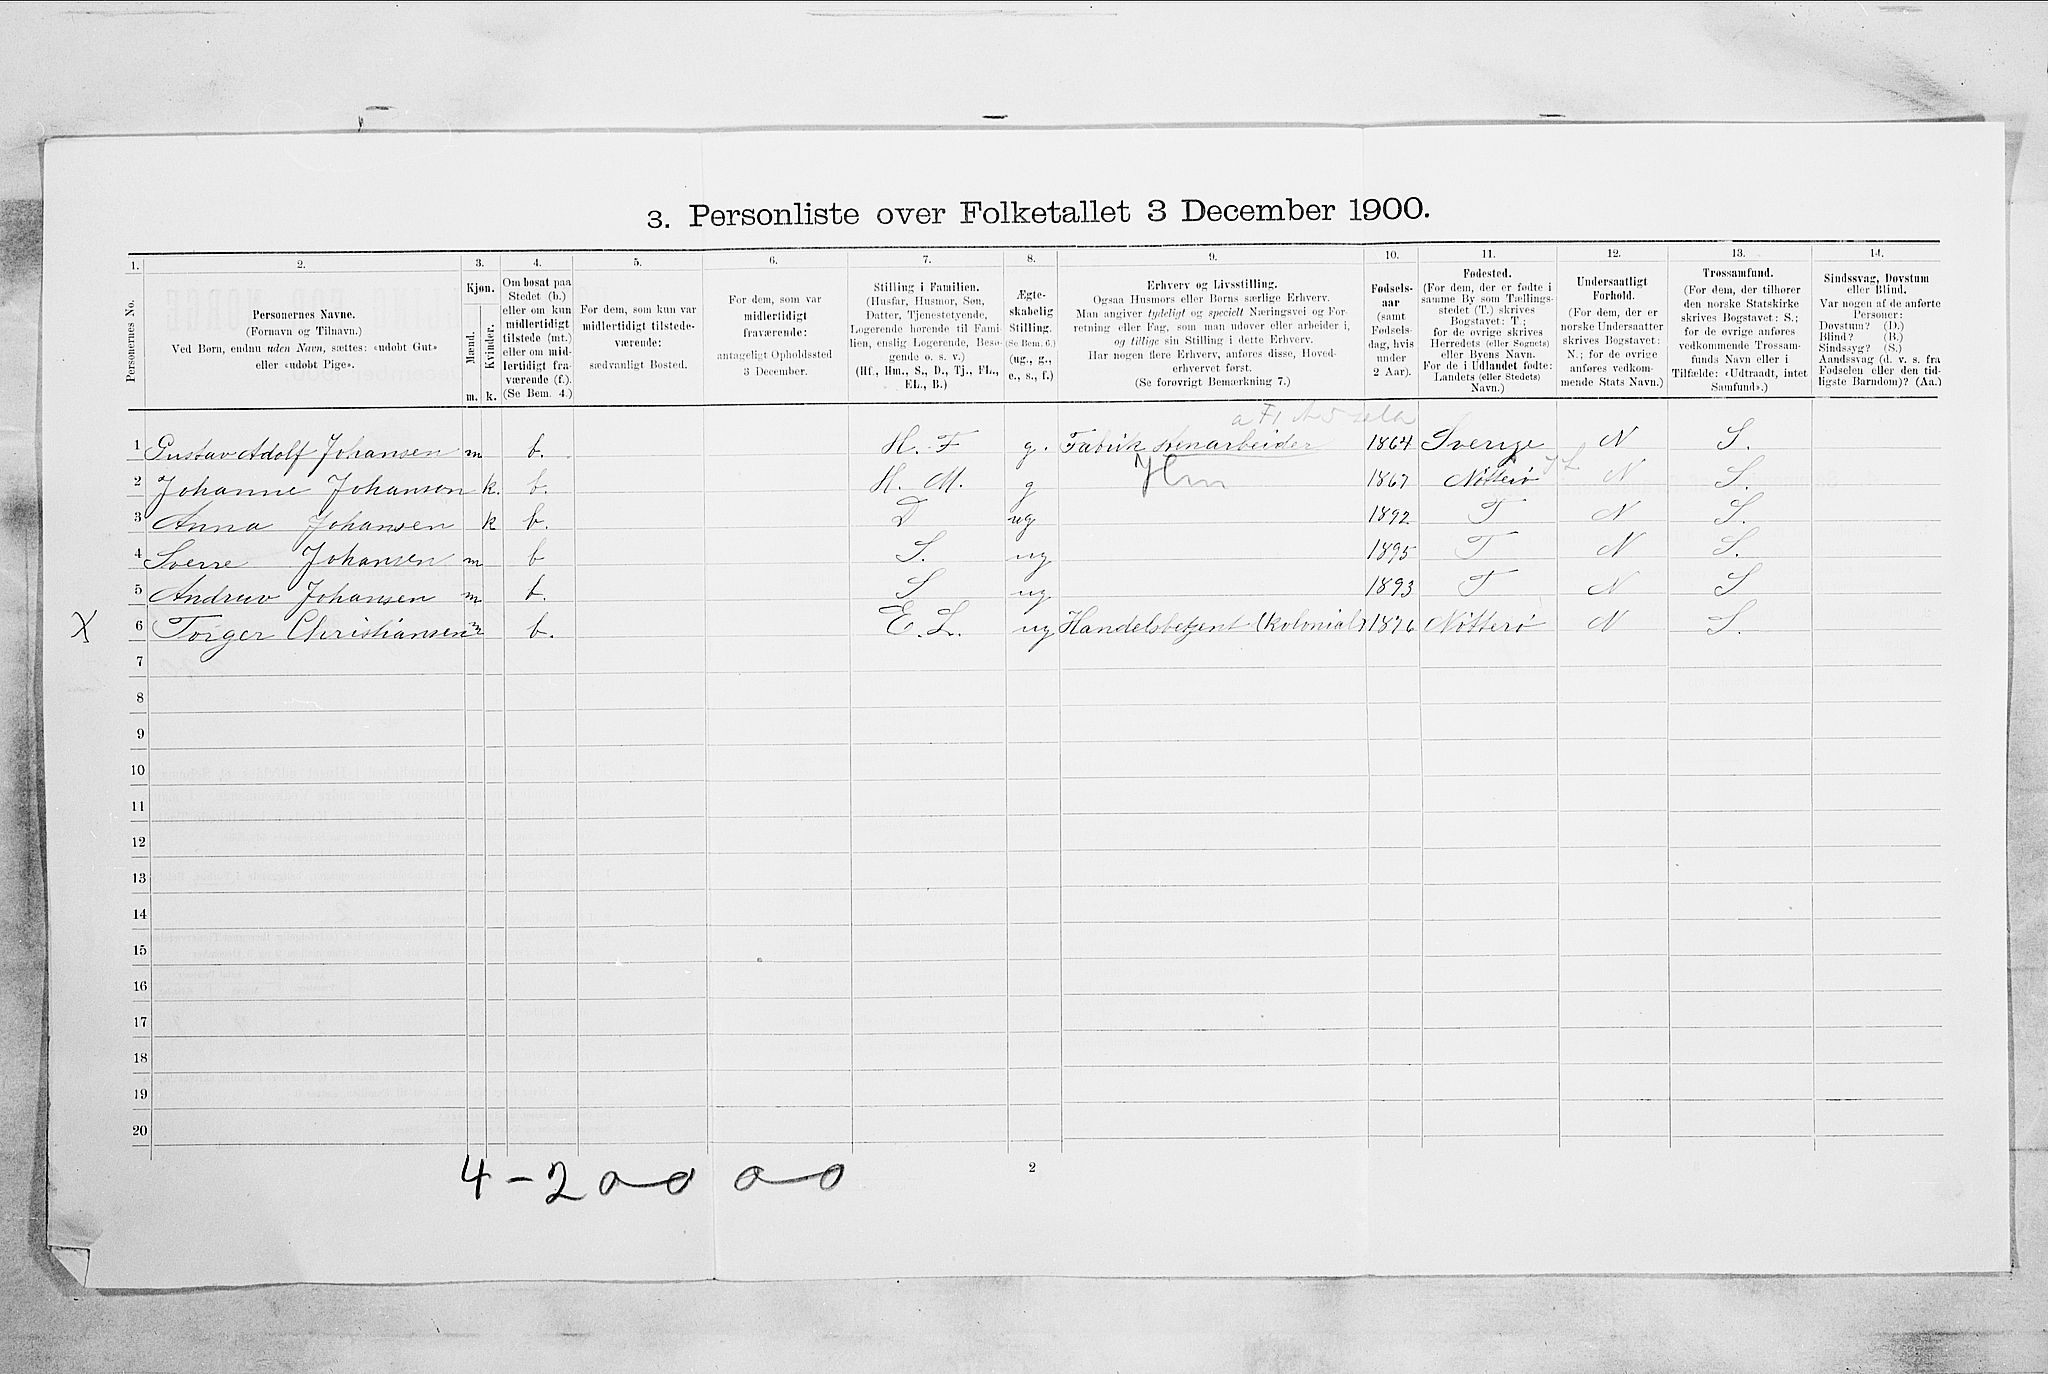 3. Personliste over Folketallet 3 December 1900.
1. 2. 3. 4. 5. 6. 7. 8. 9. 10. 11. 12. 13. 14.
Personernes No.
Personernes Navne.
(Fornavn og Tilnavn.)
Ved Børn, endnu uden Navn, sættes: «udøbt Gut»
eller «udøbt Pige».
Kjøn.
Mænd.
Kvinder.
m. k.
Om bosat paa
Stedet (b.)
eller om kun
midlertidigt
tilstede (mt.)
eller om mid-
lertidigt fra-
værende (f.).
(Se Bem. 4.)
For dem, som kun var
midlertidigt tilstede-
værende:
sædvanligt Bosted.
For dem, som var
midlertidigt
fraværende:
antageligt Opholdssted
3 December.
Stilling i Familien.
(Husfar, Husmor, Søn,
Datter, Tjenestetyende,
Logerende hørende til Fami-
lien, enslig Logerende, Besø-
gende o. s. v.)
(Hf., Hm., S., D., Tj., FL.,
EL., B.)
Ægte-
skabelig
Stilling.
(Se Bem. 6.)
(ug., g.,
e., s., f.)
Erhverv og Livsstilling.
Ogsaa Husmors eller Børns særlige Erhverv.
Man angiver tydeligt og specielt Næringsvei og For-
retning eller Fag, som man udøver eller arbeider i,
og tillige sin Stilling i dette Erhverv.
Har nogen flere Erhverv, anføres disse, Hoved-
erhvervet først.
(Se forøvrigt Bemærkning 7.)
Fødsels-
aar
(samt
Fødsels-
dag, hvis
under
2 Aar).
Fødested.
(For dem, der er fødte i
samme By som Tællings-
stedet (T.) skrives
Bogstavet: T.;
for de øvrige skrives
Herredets (eller Sognets)
eller Byens Navn.
For de i Udlandet fødte:
Landets (eller Stedets)
Navn.)
Undersaatligt
Forhold.
(For dem, der er
norske Undersaatter
skrives Bogstavet:
N.; for de øvrige
anføres vedkom-
mende Stats Navn.)
Trossamfund.
(For dem, der tilhører
den norske Statskirke
skrives Bogstavet: S.;
for de øvrige anføres
vedkommende Trossam-
funds Navn eller i
Tilfælde: «Udtraadt, intet
Samfund».)
Sindssvag, Døvstum
eller Blind.
Var nogen af de anførte
Personer:
Døvstum? (D.)
Blind? (B.)
Sindssyg? (S.)
Aandssvag (d. v. s. fra
Fødselen eller den tid-
ligste Barndom)? (Aa.)
1 Gustav Adolf Johansen m b. H. F g. Fabrik 1864 Sverige N S.
2 Johanne Johansen k. b. H. M. g Hm 1867 Nøtterø N S.
3 Anna Johansen k b. D ug 1892 T N S.
4 Sverre Johansen m b S. ug 1895 T N S.
5 Johansen m b. S ug 1893 T N S
X 6 Torger Christiansen m b. E. L. ug Handelsbetjent (kolonial) 1876 Nøtterø N S.
7
8
9
10
11
12
13
14
15
16
17
18
19
20
4-2 00 00
2